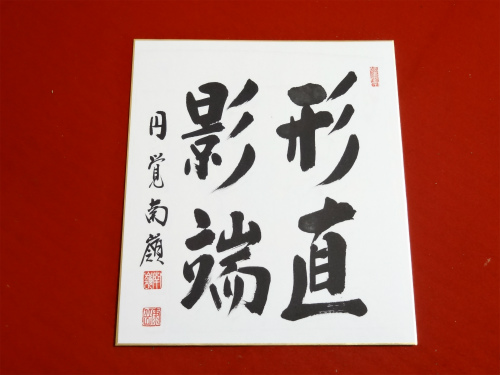 形直
影端
円覚南嶺